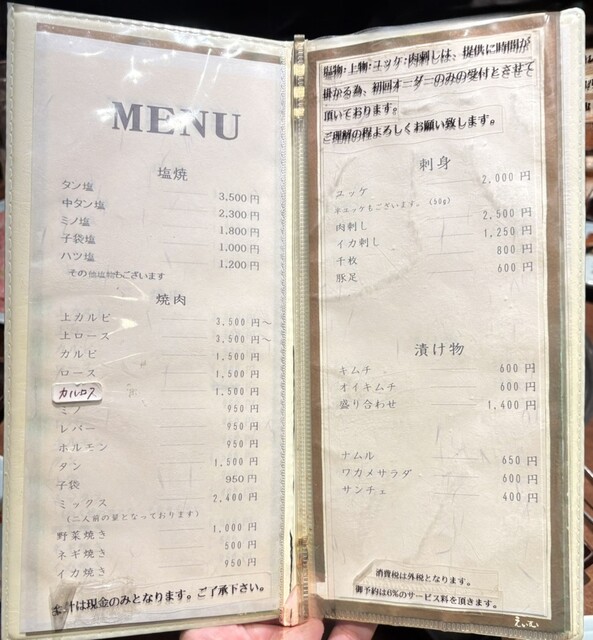 MENU
塩焼
タン塩 3,500円
中タン塩 2,300円
ミノ塩 1,800円
子袋塩 1,000円
ハツ塩 1,200円
その他塩物もございます
焼肉
上カルビ 3,500円～
上ロース 3,500円～
カルビ 1,500円
ロース 1,500円
カルロス 1,500円
ミノ 950円
レバー 950円
ホルモン 950円
タン 1,500円
子袋 950円
ミックス 2,400円
(二人前の量となっております)
野菜焼き 1,000円
ネギ焼き 500円
イカ焼き 950円
会計は現金のみとなります。ご了承下さい。
塩物・上物・ユッケ・肉刺しは、提供に時間が
掛かる為、初回オーダーのみの受付とさせて
頂いております。
ご理解の程よろしくお願い致します。
刺身
ユッケ 2,000円
半ユッケもございます。(50g)
肉刺し 2,500円
イカ刺し 1,250円
千枚 800円
豚足 600円
漬け物
キムチ 600円
オイキムチ 600円
盛り合わせ 1,400円
ナムル 650円
ワカメサラダ 600円
サンチェ 400円
消費税は外税となります。
御予約は6%のサービス料を頂きます。
えいむ